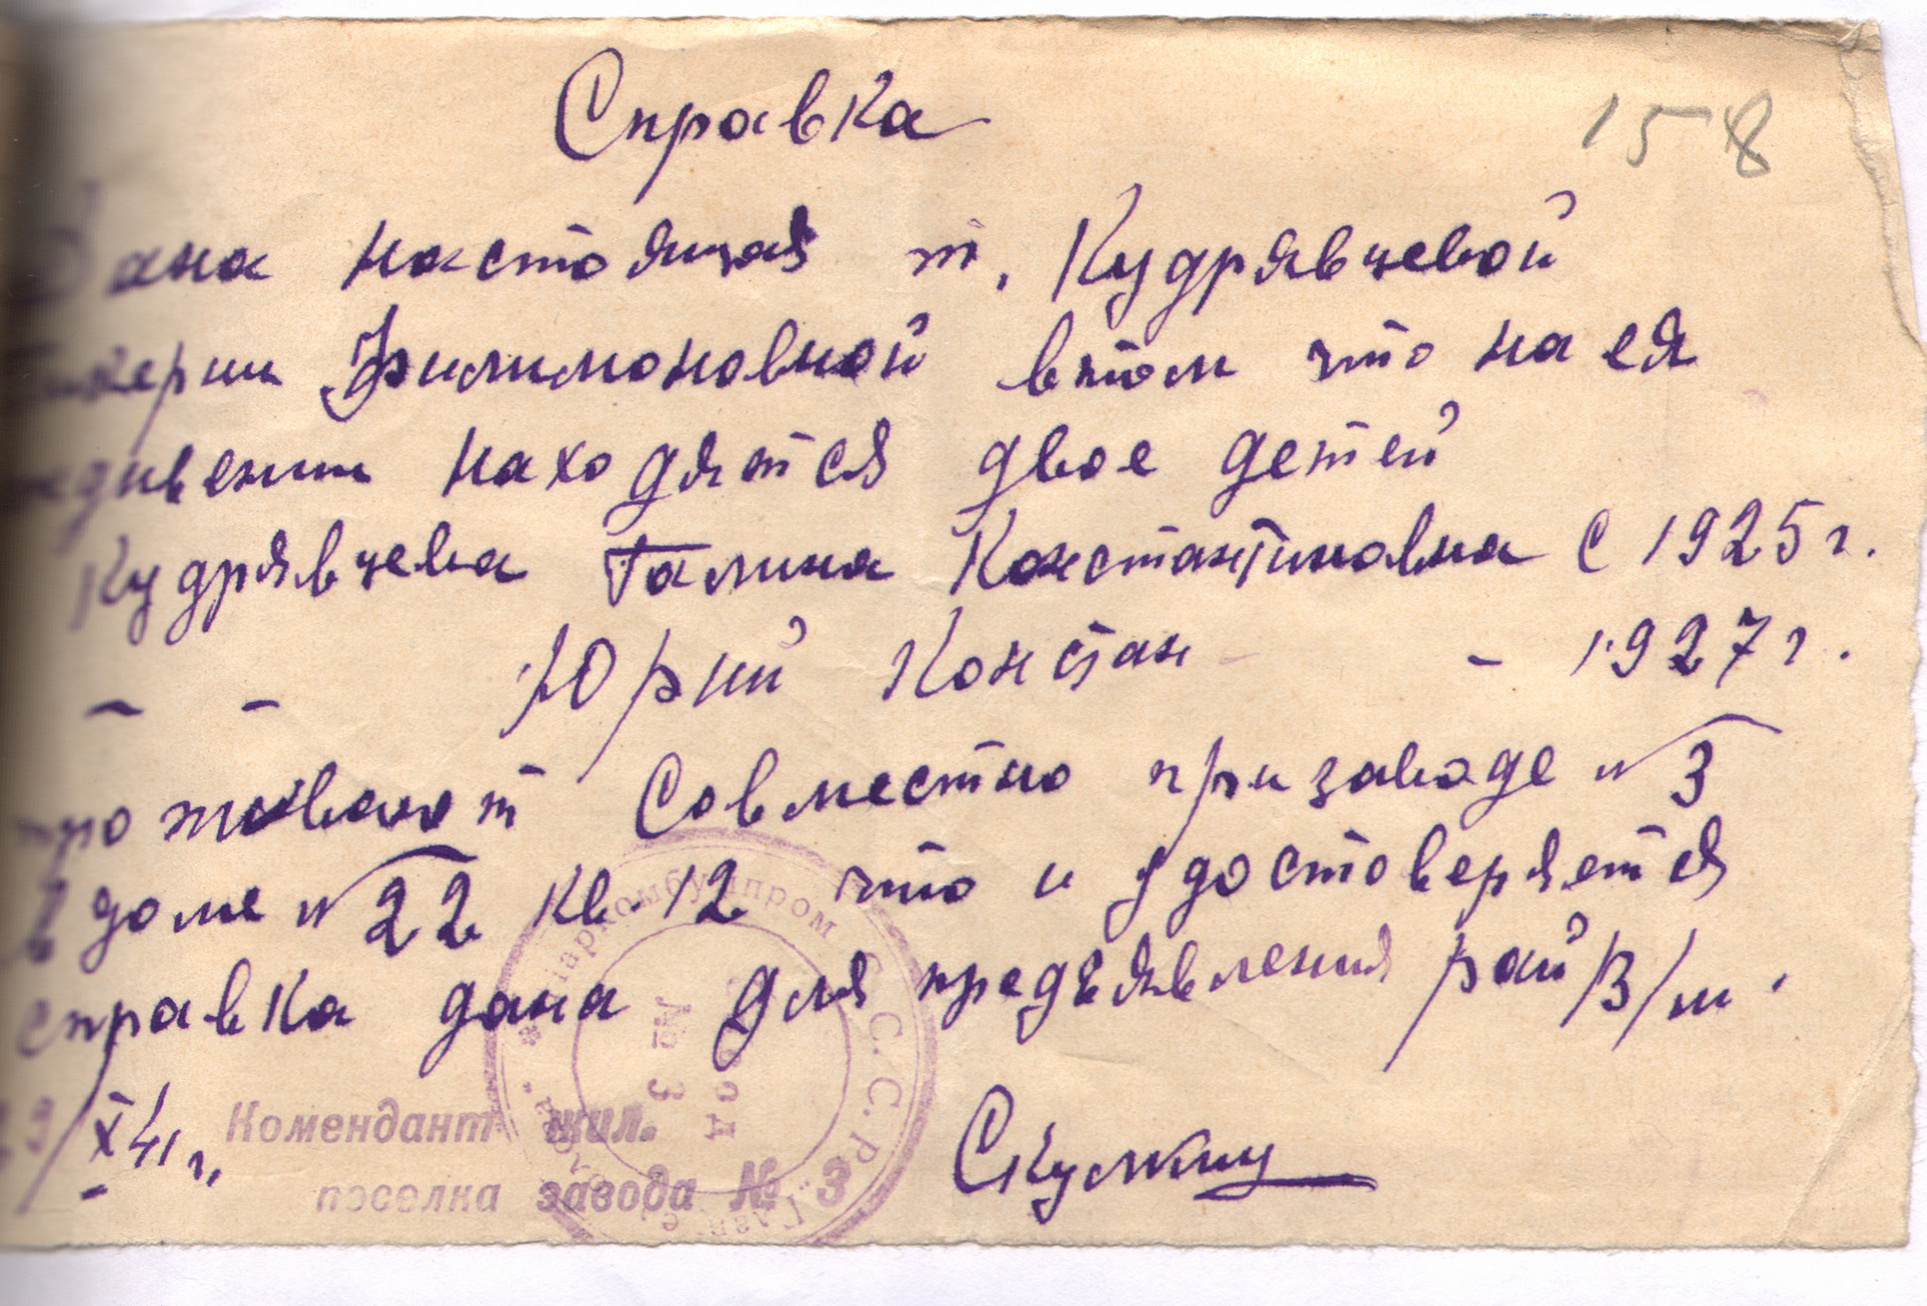 Справка
158
Дана настоящая т. Кудрявцевой
Филимоновной втом что на ея
находятся двое детей
Кудрявцева Галина Константиновна с 1925 г.
– – Юрий Констан – 1927 г.
проживают Совместно при заводе № 3
в доме № 22 кв. 12 что и удостоверяется
справка дана для предъявления рай В/м.
X 41 г.
Комендант жил.
поселка завода № 3
Наркомбумпром С.С.С.Р.
Завод
№ 3